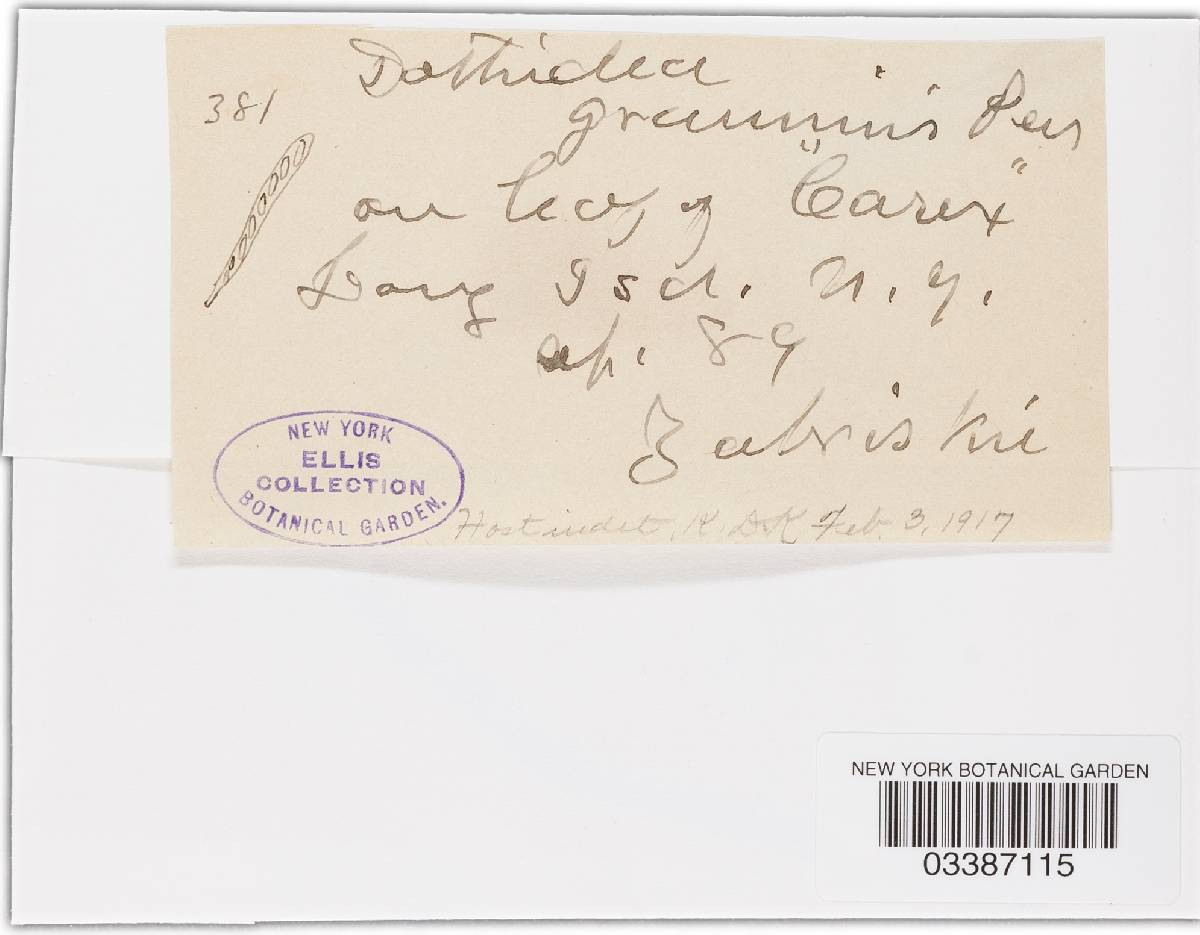 Dothidea
381
graminis Pers
on lvs. of "Carex"
Long Isd. N.Y.
Ap. 89
Zabriskie
NEW YORK
ELLIS
COLLECTION
BOTANICAL GARDEN.
Host indet. K. D.K Feb. 3, 1917
NEW YORK BOTANICAL GARDEN
03387115